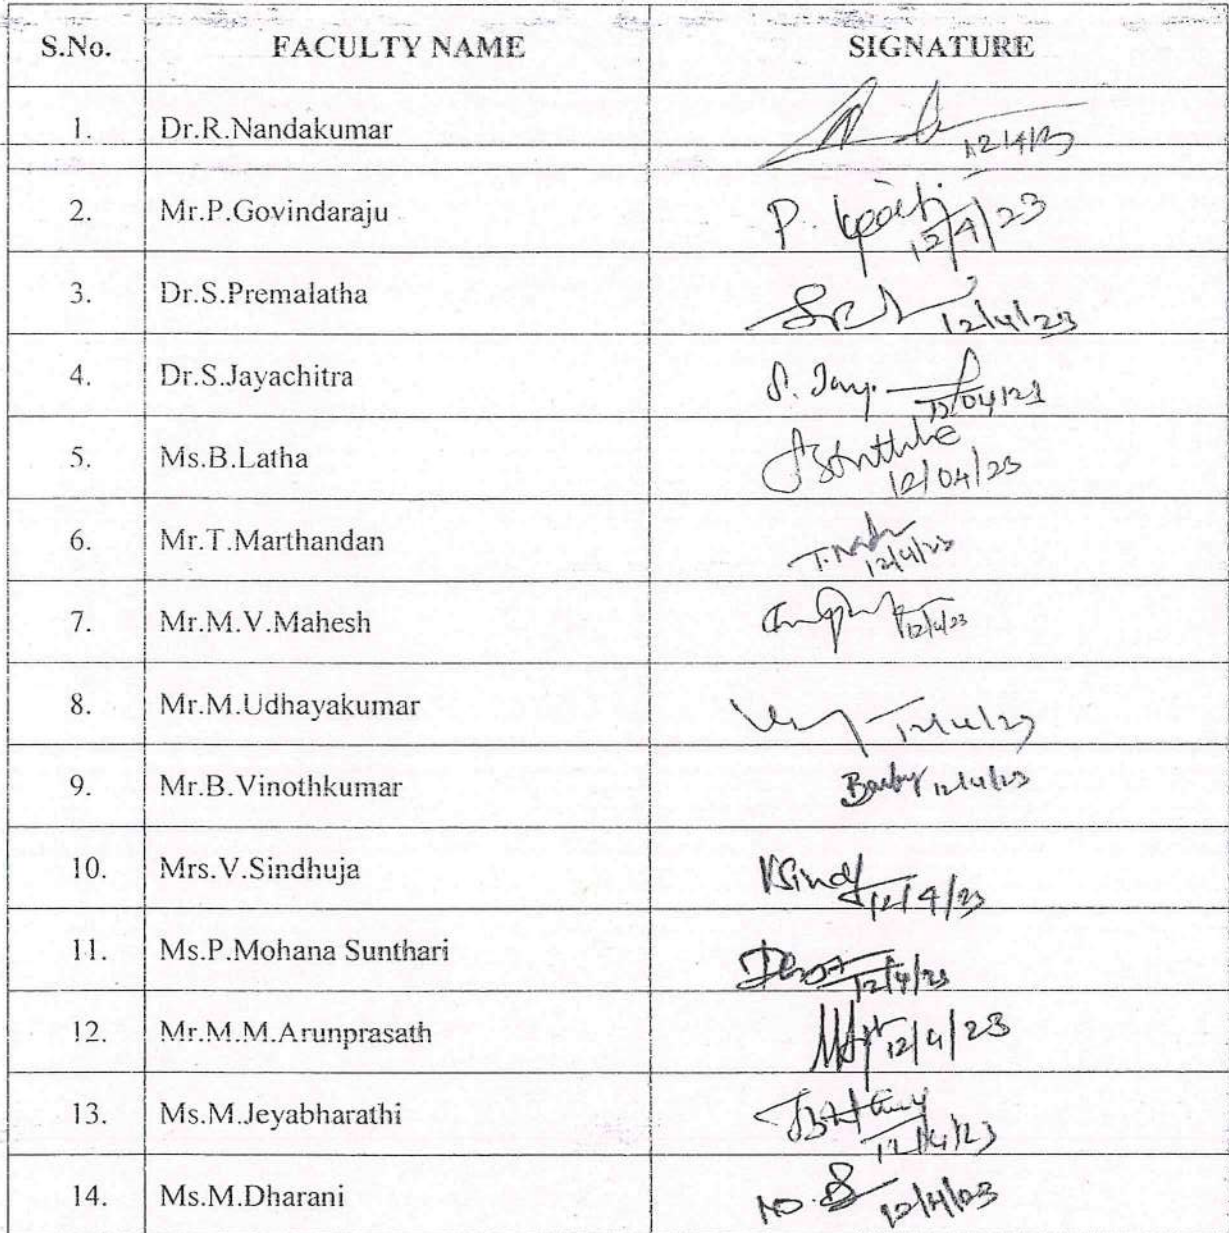 S.No. FACULTY NAME SIGNATURE
1. Dr.R.Nandakumar 12/4/23
2. Mr.P.Govindaraju P. 12/4/23
3. Dr.S.Premalatha 12/4/23
4. Dr.S.Jayachitra S. Jay.
5. Ms.B.Latha 12/04/23
6. Mr.T.Marthandan 12/4/23
7. Mr.M.V.Mahesh 12/4/23
8. Mr.M.Udhayakumar 12/4/23
9. Mr.B.Vinothkumar 12/4/23
10. Mrs.V.Sindhuja 12/4/23
11. Ms.P.Mohana Sunthari 12/4/23
12. Mr.M.M.Arunprasath 12/4/23
13. Ms.M.Jeyabharathi 12/4/23
14. Ms.M.Dharani